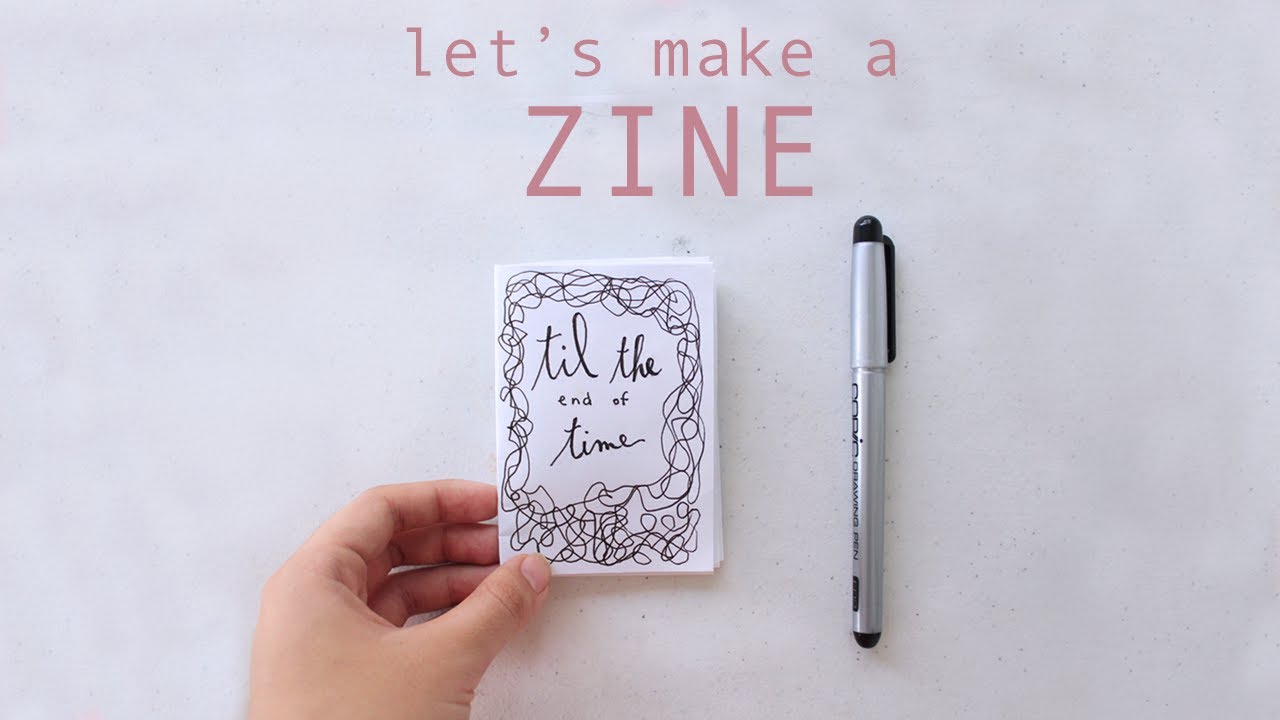 let's make a
ZINE
til the
end of
time
COPIC DRAWING PEN